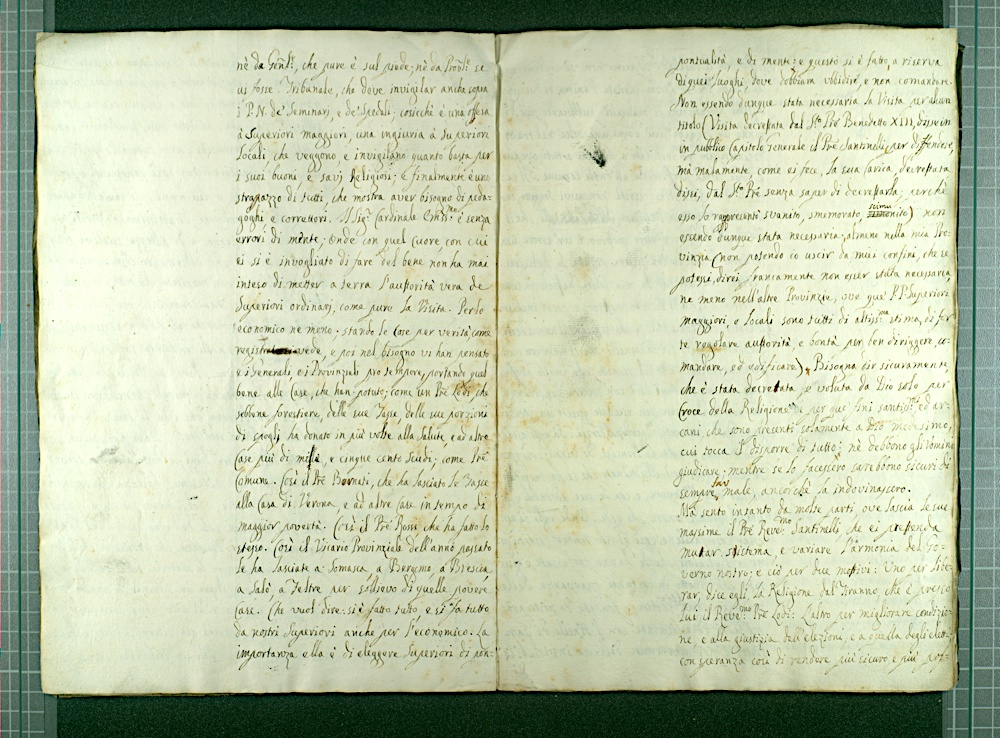 nè da Gen̄li, che pure è sul piede; nè da Prov̄li se
vi fosse Tribunale, che deve invigilar anche sopra
i P.N. de' Seminarj, e de' Spedali; cosicchè è una offesa
à Superiori maggiori, una ingiuria à superiori
Locali che veggono, e invigilano quanto basta per
i suoi buoni e savj Religiosi; e finalmente è uno
strapazzo di tutti, che mostra aver bisogno di peda-
goghi e correttori. Il Sigr Cardinale è senza
errori di mente; Onde con quel cuore con cui
ei si è invogliato di fare del bene non ha mai
inteso di metter a terra l'auttorità vera de
Superiori ordinarj, come pure la Visita. Per lo
economico ne meno; stando le Cose per verità come
vede, e poi nel bisogno vi han pensato
e i Generali, e i Provinciali pro tempore, portando quel
bene alle Case, che han potuto; come un Pré Lodi che
sebbene forestiere, delle sue Tasse, delle sue porzioni
di spogli ha donato in più volte alla Salute, e ad altre
Case più di mille, e cinque cento Scudi; come Pré
Comuni. Così il Pré Bornati, che ha lasciato le Tasse
alla Casa di Verona, e ad altre Case in tempo di
maggior povertà. Così il Pré Rossi che ha fatto lo
stesso. Così il Vicario Provinziale dell'anno passato
le ha lasciate a Somasca, a Bergamo, a Brescia
a Salò, a Feltre per sollievo di quelle povere
Case. Che vuol dire: si è fatto tutto, e si fa tutto
da nostri Superiori anche per l'economico. La
importanza ella è di eleggere Superiori di pon-
pontualità, e di mente; e questo si è fatto, a riserva
di quei luoghi dove dobbiam ubidire, e non comandare.
Non essendo dunque stata necessaria la Visita per alcun
titolo (Visita decretata dal Sto Pré Benedetto XIII, disse in
un publico Capitolo Generale il Pré Santinelli, per diffendere,
mà malamente, come ei fece, la sua Carica, decrettata
dissi, dal Sto Pré senza saper di decretarla; perchè
esso lo rappresentò svanito, smemorato, scimu nito) non
essendo dunque stata necessaria; almeno nella mia Pro-
vinzia (non potendo io uscir da miei confini, che se
potessi, direi francamente non esser stata necessaria
ne meno nell'altre Provinzie, ove que' P.P. Superiori
maggiori, e Locali sono tutti di altissma stima, di for-
te regolare auttorità, e bontà per ben diriggere, co-
mandare, ed edificare) Bisogna dir sicuramente,
che è stata decretata, e voluta da Dio solo per
Croce della Religione; e per que' fini santissmi ed ar-
cani, che sono presenti solamente a Dio medesimo,
cui tocca il disporre di tutto; nè debbono gli Uomini
giudicare; mentre se lo facessero sarebbono sicuri di
sempre far male, ancorchè la indovinassero.
Mà sento intanto da molte parti, ove lascia le sue
massime il Pré Revermo Santinelli, che ei pretenda
mutar sistema, e variare l'armonia del Go-
verno nostro; e ciò per due motivi: Uno per libe-
rar, dice egli, la Religione dal Tiranno, che è presso
lui il Revermo Pré Lodi: L'altro per migliorare condizio-
ne e alla giustizia dell'elezione, e a quella degli eletti
con speranza così di rendere più sicuro e più pos-